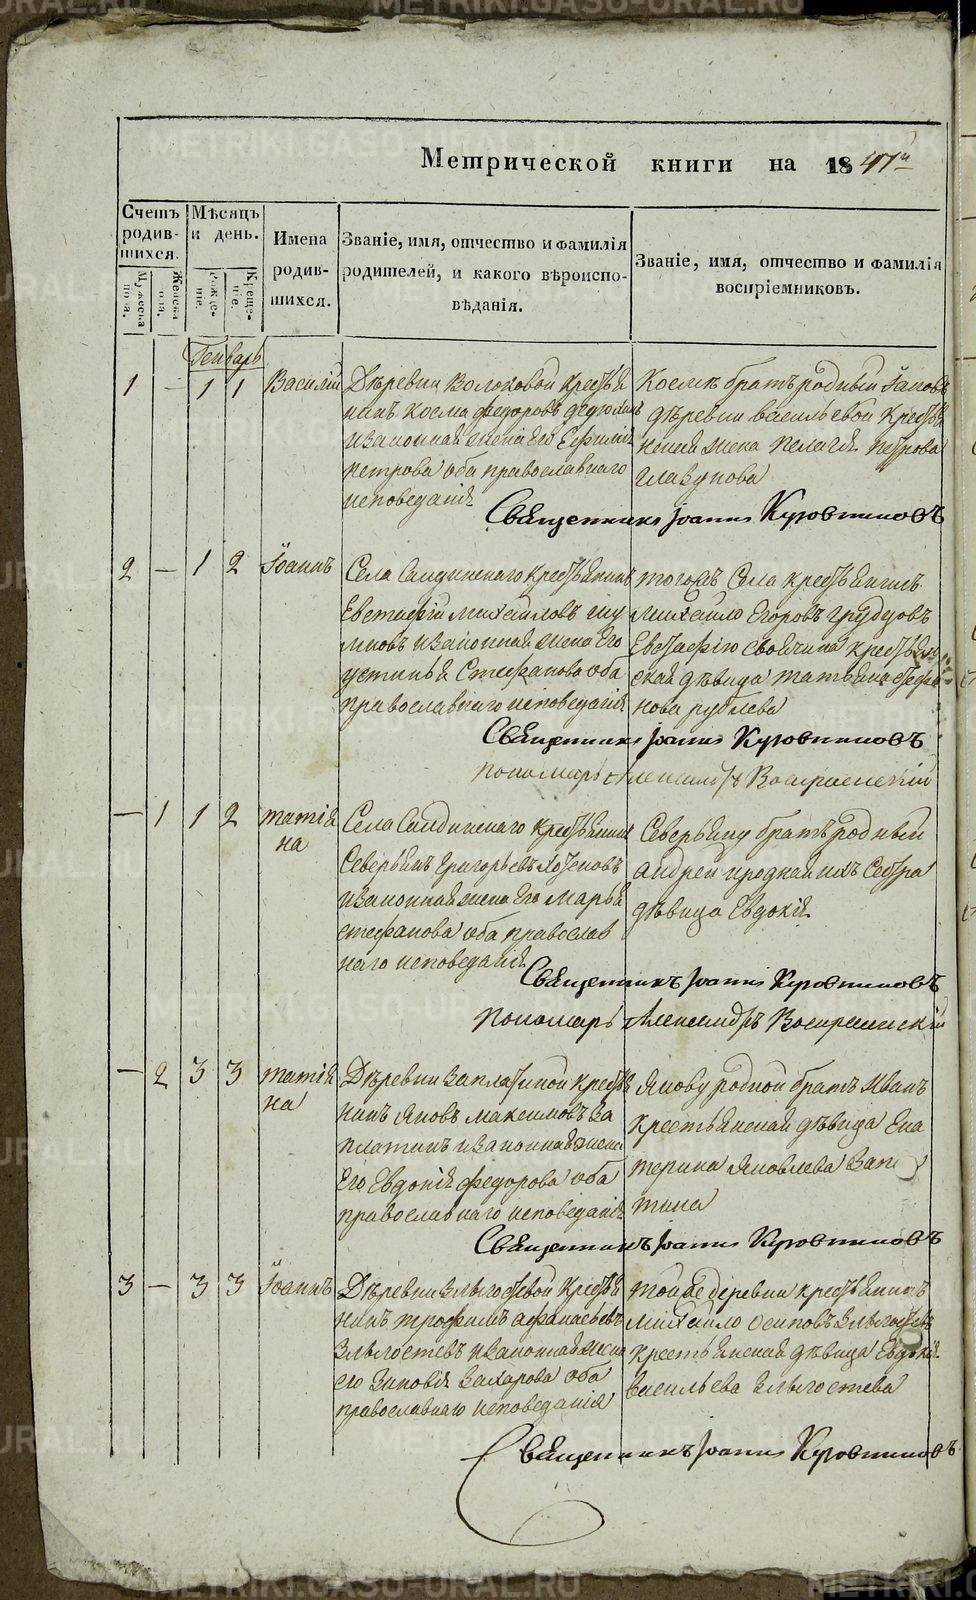 Метрической книги на 1847й
Счетъ родив- шихся.
Мѣсяцъ и день.
Имена родив- шихся.
Званіе, имя, отчество и фамилія родителей, и какого вѣроиспо- вѣданія.
Званіе, имя, отчество и фамилія воспріемниковъ.
Мужеска пола.
Женска пола.
Рожде- ніе.
Креще- ніе.
Генварь
1 — 1 1 Василій
Деревни Волоковой крестья
нинъ Косма Федоровъ
и законная жена его
Петрова оба православнаго
исповеданія
Космѣ братъ родный
деревни Васильевой
жена Пелагея Петрова
Глазунова
Священникъ Іоаннъ Кузовниковъ
2 — 1 2 Іоаннъ
Села Салдинскаго крестьянинъ
Евстафій Михайловъ
и законная жена его
Устинья Стефанова оба
православнаго исповеданія
тогожъ Села крестьянинъ
Михайло Егоровъ
Евстафію своячина
дѣвица Татьяна Стефа
нова Рублева
Священникъ Іоаннъ Кузовниковъ
Пономарь Александръ Воскресенскій
— 1 1 2 Татiя
на
Села Салдинскаго крестьянинъ
Северьянъ Григорьевъ
и законная жена его Марья
Стефанова оба православ
наго исповеданія
Северьяну братъ родный
Андрей и родная ихъ Сестра
дѣвица Евдокія
Священникъ Іоаннъ Кузовниковъ
Пономарь Александръ Воскресенскій
— 2 3 3 Татiя
на
Деревни Заплатиной крестья
нинъ Яковъ Максимовъ За
платинъ и законная жена
Его Евдокія Федорова оба
православнаго исповеданія
Якову родной братъ Иванъ
крестьянская дѣвица Ека
терина Яковлева Зап
тина
Священникъ Іоаннъ Кузовниковъ
3 — 3 3 Іоаннъ
Деревни Злыгостевой крестья
нинъ Трофимъ Афанасьевъ
Злыгостевъ и законная жена
его Зиновія Захарова оба
православнаго исповеданія
тойже деревни крестьянинъ
Михайло Осиповъ Злыгостевъ
крестьянская дѣвица Евдокія
Васильева Злыгостева
Священникъ Іоаннъ Кузовниковъ
METRIKI.GASO-URAL.RU